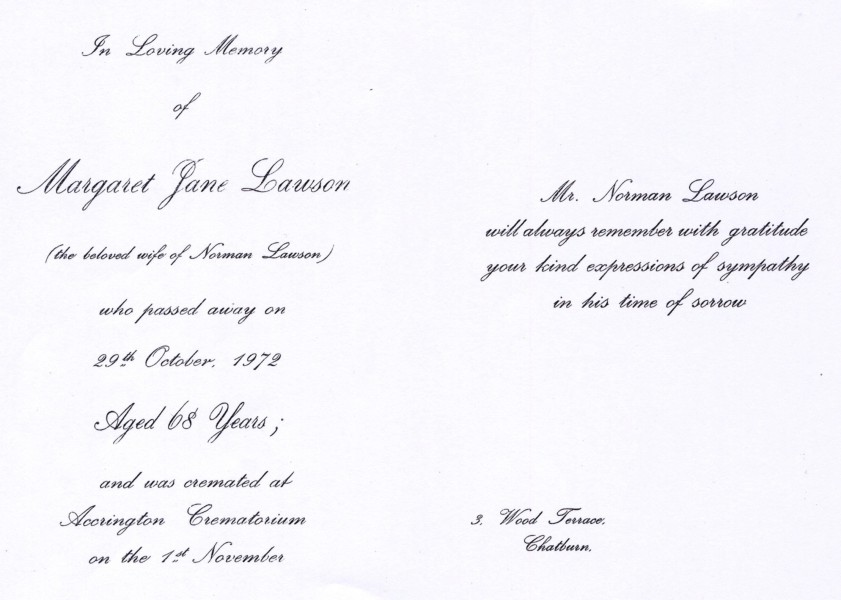 In Loving Memory
of
Margaret Jane Lawson
(the beloved wife of Norman Lawson)
who passed away on
29th October, 1972
Aged 68 Years;
and was cremated at
Accrington Crematorium
on the 1st November
Mr. Norman Lawson
will always remember with gratitude
your kind expressions of sympathy
in his time of sorrow
3. Wood Terrace,
Chatburn.